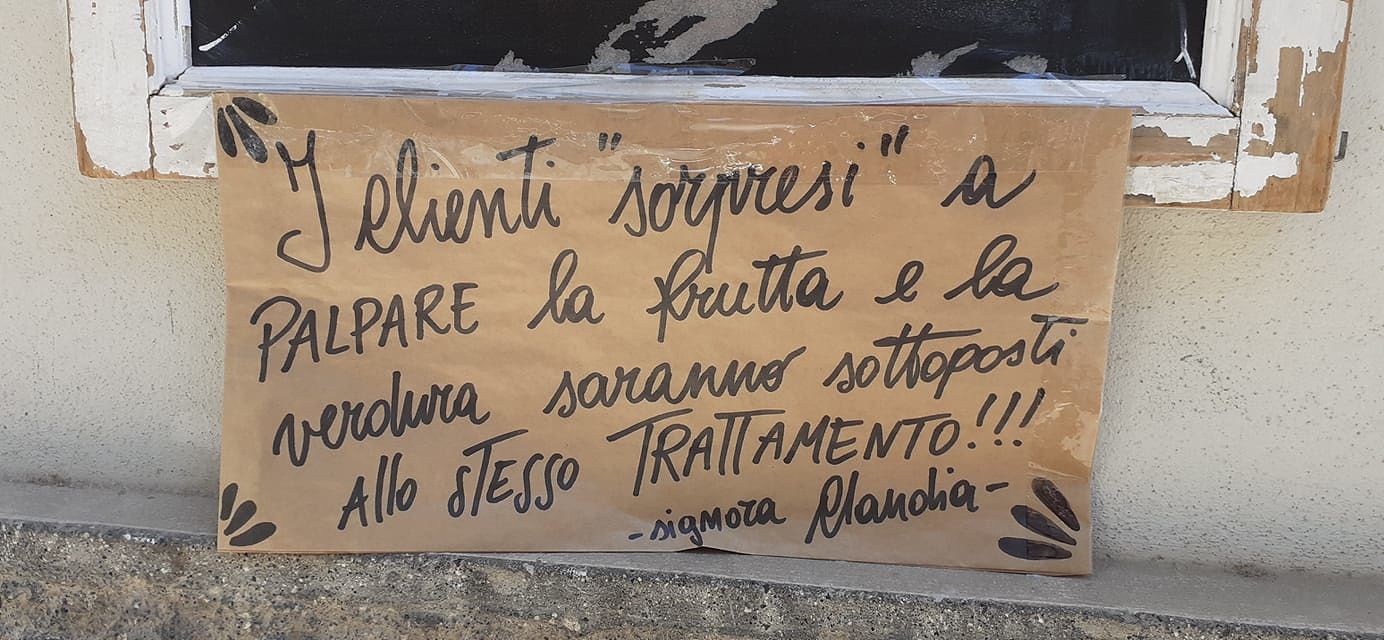 I clienti "sorpresi" a
PALPARE la frutta e la
verdura saranno sottoposti
Allo STESSO TRATTAMENTO!!!
-signora Claudia-